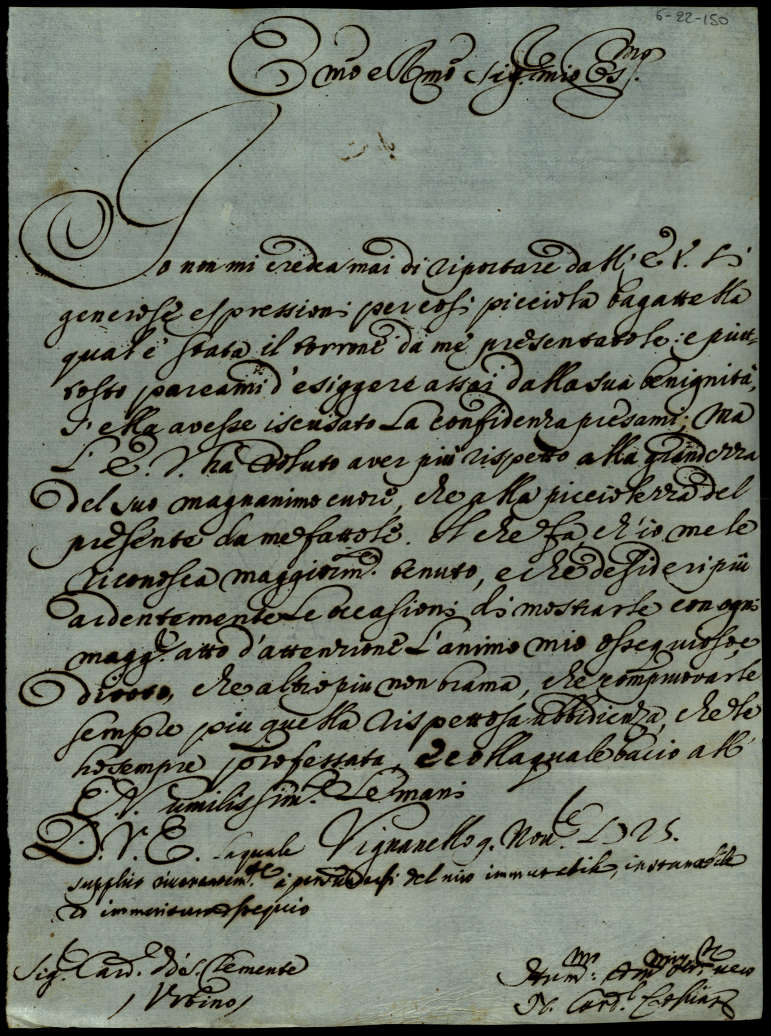 6-22-150
Emo e Rmo Sig. mio Oss.mo
Io non mi credea mai di riportare dall' E. V. sì
generose espressioni per così picciola bagattella
qual è stata il torrone da me presentatole: e piut-
tosto pareami d'esiggere assai dalla sua benignità,
s'ella avesse iscusato la confidenza presami; Ma
L'E. V. hà voluto aver più rispetto alla grandezza
del suo magnanimo cuore, che alla picciolezza del
presente da me fattole. Il che fà, ch'io me le
riconosca maggiorm.e tenuto, e che desideri più
ardentemente le occasioni di mostrarle con ogni
magg.e atto d'attenzione l'animo mio ossequioso, e
divoto, che altro più non brama, che comprovarle
sempre più quella rispettosa ubbidienza, che le
ho sempre professata, colla quale bacio all'
E. V. umilissim.e le mani
D. V. E. la quale Vignanello 9. Nov.e 1725.
supplico riverentem.te à persuadersi del mio immutabile,
ossequio
Sig.e Card.e di S. Clemente
/ Urbino /
Hum.mo
N. Card.l